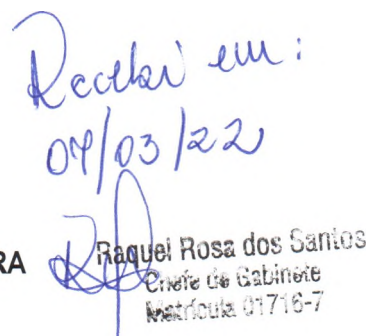 Recebi em:
07/03/22
RA
Raquel Rosa dos Santos
Chefe de Gabinete
Matrícula 01716-7